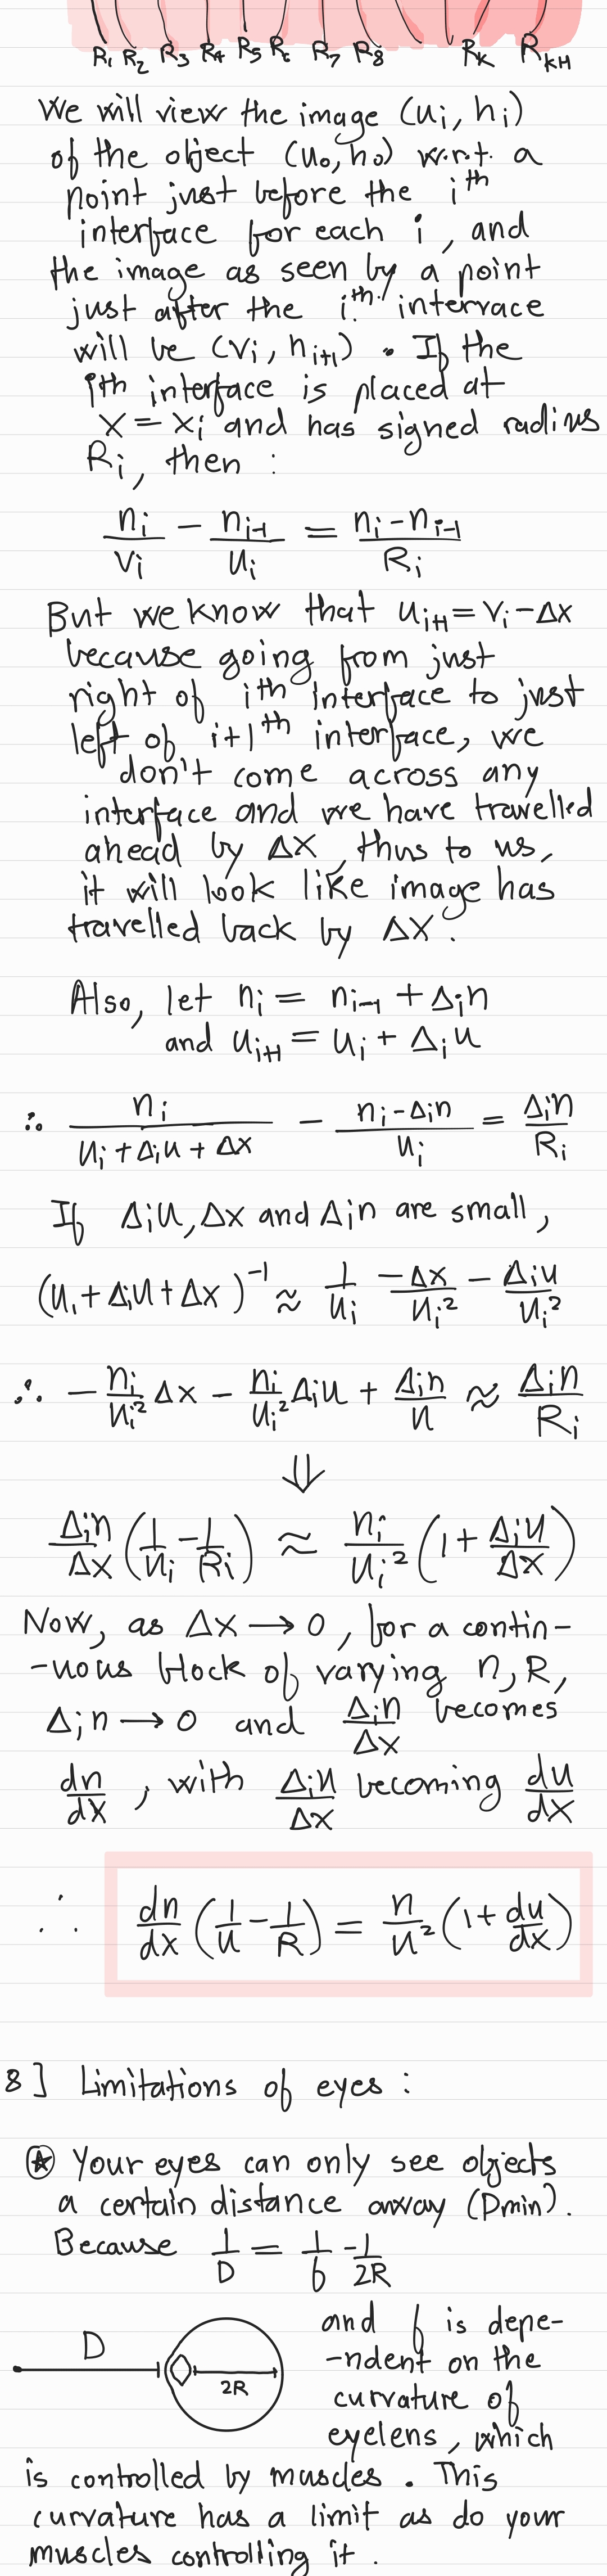 R₁ R₂ R₃ R₄ R₅ R₆ R₇ R₈ Rₖ Rₖ₊₁
We will view the image (uᵢ, hᵢ)
of the object (u₀, h₀) w.r.t. a
point just before the iᵗʰ
interface for each i, and
the image as seen by a point
just after the iᵗʰ interrace
will be (vᵢ, hᵢ₊₁). If the
iᵗʰ interface is placed at
x = xᵢ and has signed radius
Rᵢ, then :
nᵢ/vᵢ − nᵢ₋₁/uᵢ = (nᵢ − nᵢ₋₁)/Rᵢ
But we know that uᵢ₊₁ = vᵢ − Δx
because going from just
right of iᵗʰ interface to just
left of i+1ᵗʰ interface, we
don't come across any
interface and we have travelled
ahead by Δx, thus to us,
it will look like image has
travelled back by Δx.
Also, let nᵢ = nᵢ₋₁ + Δᵢn
and uᵢ₊₁ = uᵢ + Δᵢu
∴ nᵢ/(uᵢ + Δᵢu + Δx) − (nᵢ − Δᵢn)/uᵢ = Δᵢn/Rᵢ
If Δᵢu, Δx and Δᵢn are small,
(uᵢ + Δᵢu + Δx)⁻¹ ≈ 1/uᵢ − Δx/uᵢ² − Δᵢu/uᵢ²
∴ − nᵢ/uᵢ² Δx − nᵢ/uᵢ² Δᵢu + Δᵢn/u ≈ Δᵢn/Rᵢ
⇓
Δᵢn/Δx (1/uᵢ − 1/Rᵢ) ≈ nᵢ/uᵢ² (1 + Δᵢu/Δx)
Now, as Δx → 0, for a contin-
-uous block of varying n, R,
Δᵢn → 0 and Δᵢn/Δx becomes
dn/dx, with Δᵢu/Δx becoming du/dx
∴ dn/dx (1/u − 1/R) = n/u² (1 + du/dx)
8] Limitations of eyes :
⊛ Your eyes can only see objects
a certain distance away (Dmin).
Because 1/D = 1/f − 1/2R
D
2R
and f is depe-
-ndent on the
curvature of
eyelens, which
is controlled by muscles. This
curvature has a limit as do your
muscles controlling it.